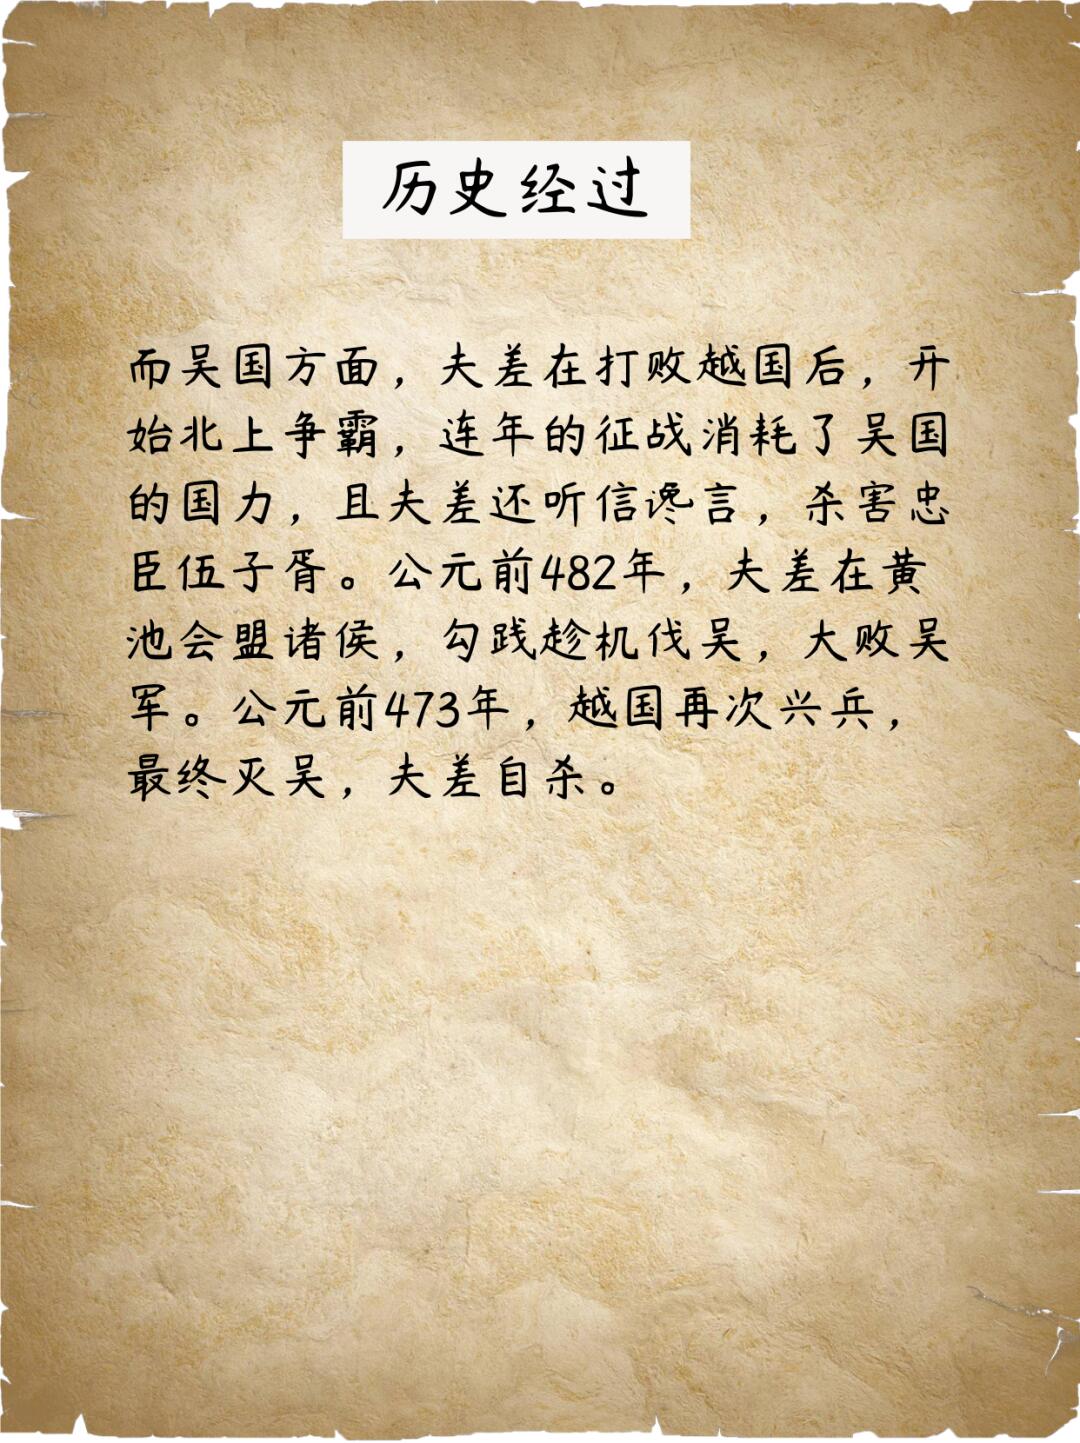 历史经过
而吴国方面，夫差在打败越国后，开
始北上争霸，连年的征战消耗了吴国
的国力，且夫差还听信谗言，杀害忠
臣伍子胥。公元前482年，夫差在黄
池会盟诸侯，勾践趁机伐吴，大败吴
军。公元前473年，越国再次兴兵，
最终灭吴，夫差自杀。